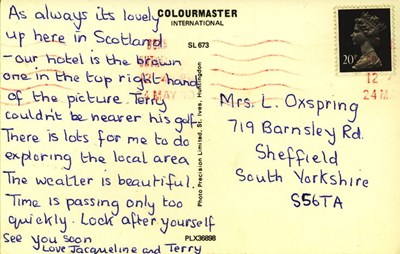 As always its lovely
up here in Scotland
- our hotel is the brown
one in the top right hand
of the picture. Terry
couldn't be nearer his golf.
There is lots for me to do
exploring the local area
The weather is beautiful.
Time is passing only too
quickly. Look after yourself
See you soon
Love Jacqueline and Terry
COLOURMASTER
INTERNATIONAL
SL 673
Photo Precision Limited, St. Ives, Huntingdon
PLX36898
20
12
24 MA
24 MAY
Mrs. L. Oxspring
719 Barnsley Rd.
Sheffield
South Yorkshire
S56TA